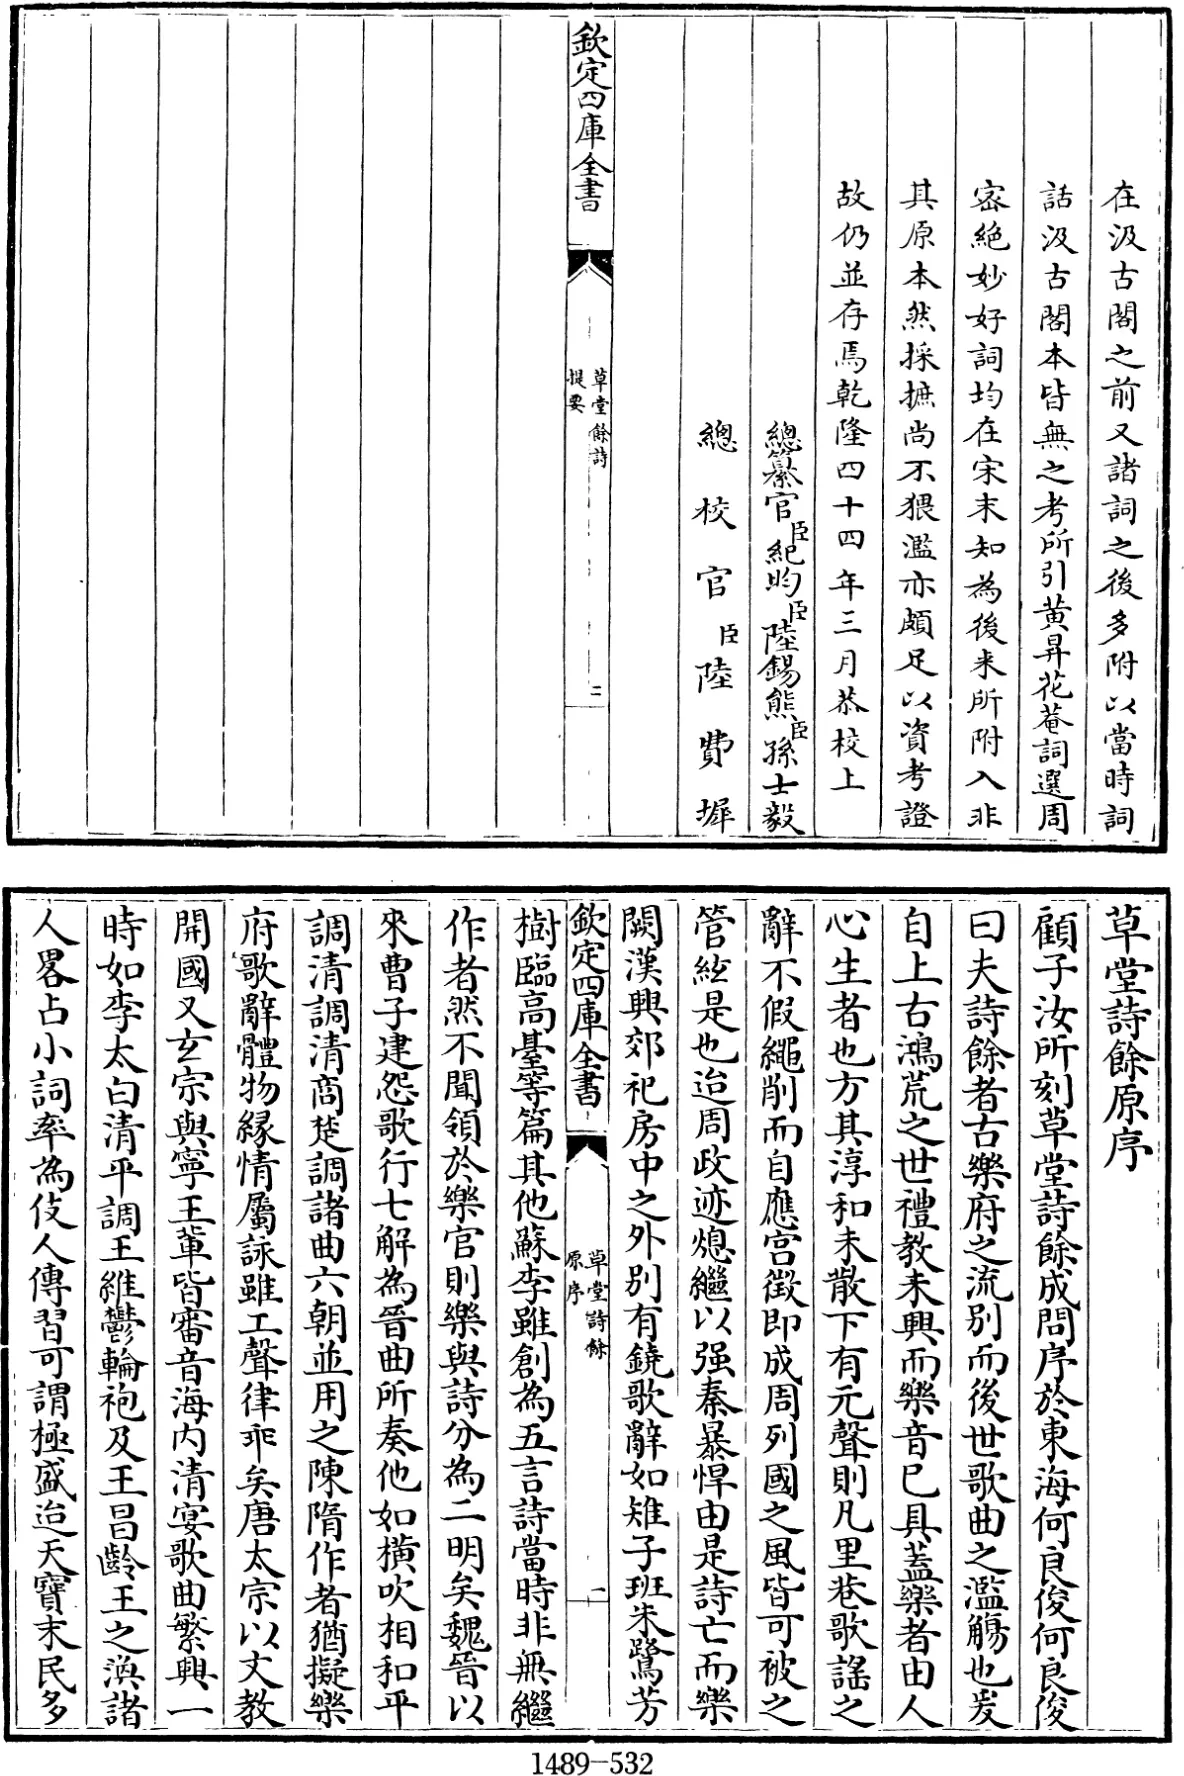 在汲古閣之前又諸詞之後多附以當時詞
話汲古閣本皆無之考所引黄昇花菴詞選周
密絶妙好詞均在宋末知為後來所附入非
其原本然採摭尚不猥濫亦頗足以資考證
故仍並存焉乾隆四十四年三月恭校上
總纂官臣紀昀臣陸錫熊臣孫士毅
總校官臣陸費墀
欽定四庫全書
草堂餘詩
提要
二
草堂詩餘原序
顧子汝所刻草堂詩餘成問序於東海何良俊何良俊
曰夫詩餘者古樂府之流别而後世歌曲之濫觴也爰
自上古鴻荒之世禮教未興而樂音已具蓋樂者由人
心生者也方其淳和未散下有元聲則凡里巷歌謡之
辭不假繩削而自應宫徵即成周列國之風皆可被之
管絃是也迨周政迹熄繼以强秦暴悍由是詩亡而樂
闕漢興郊祀房中之外别有鐃歌辭如雉子班朱鷺芳
欽定四庫全書
草堂詩餘
原序
一
樹臨高臺等篇其他蘇李雖創為五言詩當時非無繼
作者然不聞領於樂官則樂與詩分為二明矣魏晉以
來曹子建怨歌行七解為晉曲所奏他如横吹相和平
調清調清商楚調諸曲六朝並用之陳隋作者猶擬樂
府歌辭體物緣情屬詠雖工聲律乖矣唐太宗以文教
開國又玄宗與寧王輩皆審音海内清宴歌曲繁興一
時如李太白清平調王維鬱輪袍及王昌齡王之渙諸
人畧占小詞率為伎人傳習可謂極盛迨天寶末民多
1489-532